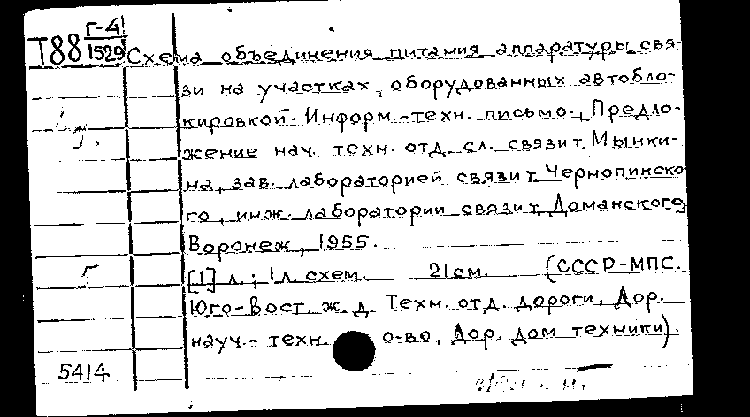 Т88 Г-4
1529 Схема объединения питания аппаратуры свя-
зи на участках, оборудованных автобло-
кировкой. Информ.-техн. письмо. Предло-
жение нач. техн. отд. сл. связи т. Мынки-
на, зав. лабораторией связи т. Чернопинско
го, инж. лаборатории связи т. Доманского
Воронеж, 1955.
[1] л.; 1 л. схем. 21 см. (СССР-МПС.
Юго-Вост. ж. д. Техн. отд. дороги. Дор.
науч.- техн. о-во, Дор. дом техники).
5414